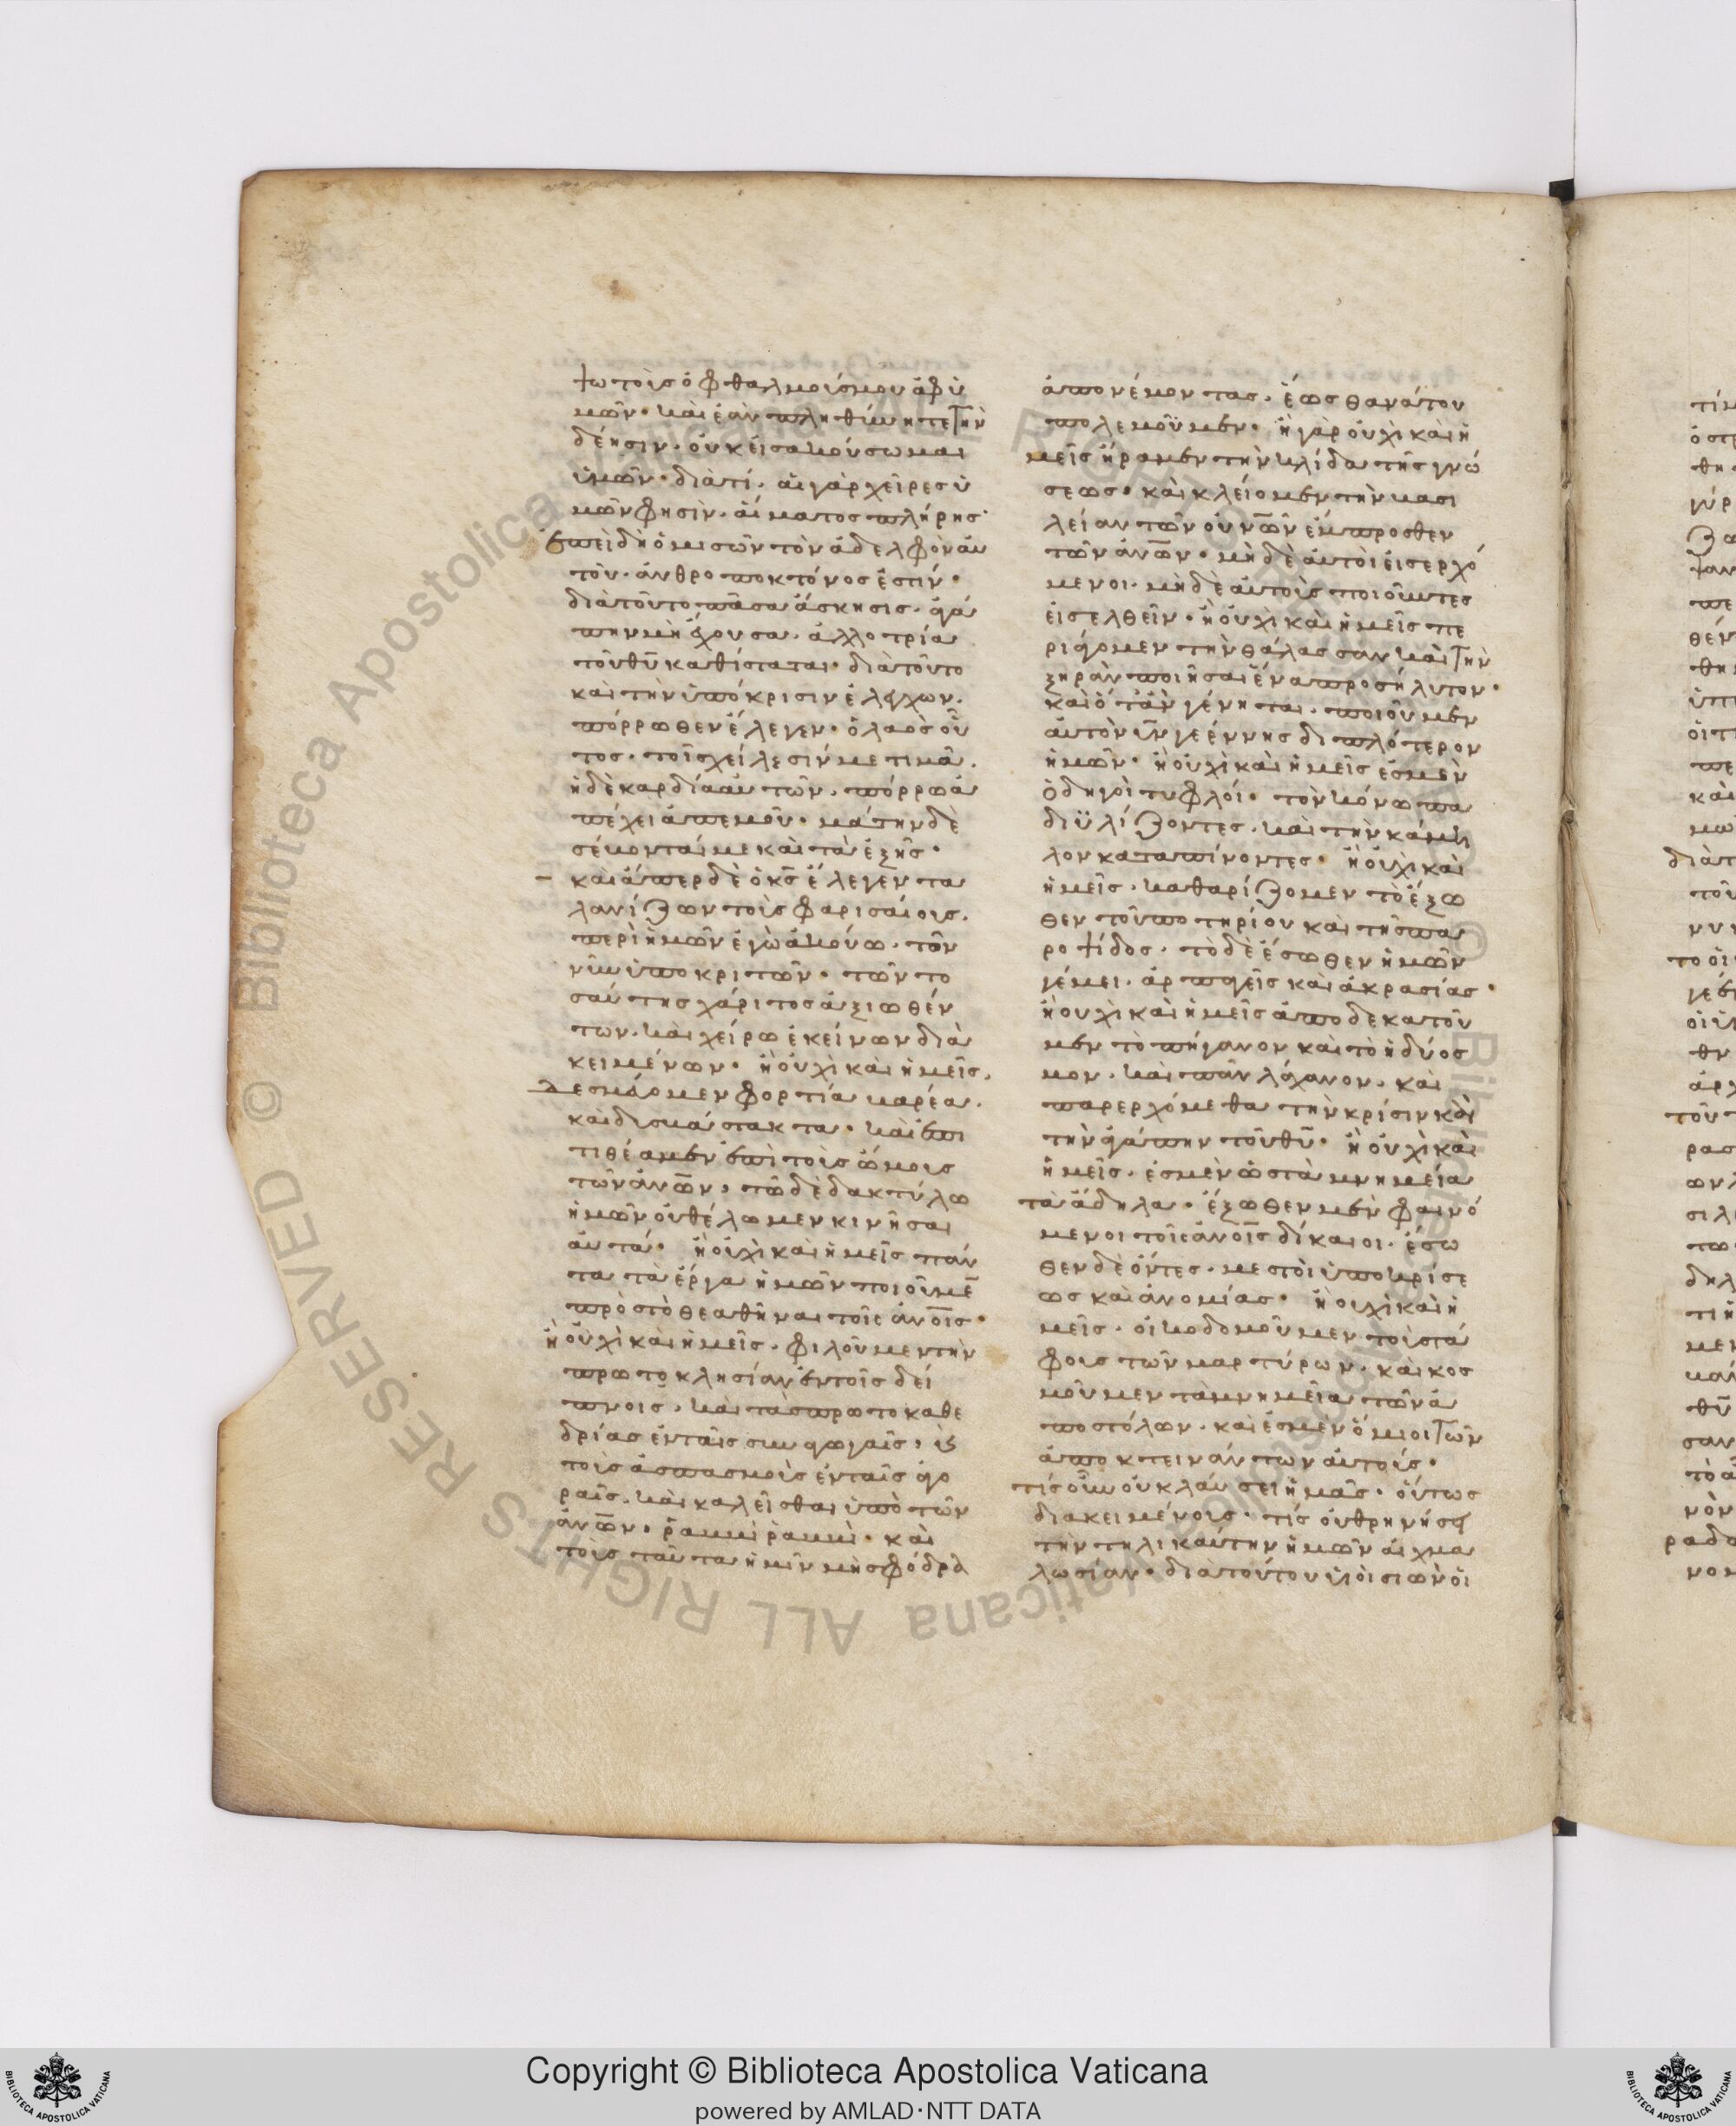 ψω τοὺς ὀφθαλμούς μου ἀφ' ὑ
μῶν· καὶ ἐὰν πληθύνητε τὴν
δέησιν· οὐκ εἰσακούσωμαι
ὑμῶν· διατί· αἱ γὰρ χεῖρες ὑ
μῶν φησὶν· αἵματος πλήρης·
ἐπειδὴ ὁ μισῶν τὸν ἀδελφὸν αὐ
τοῦ· ἀνθροποκτόνος ἐστίν·
διὰ τοῦτο πᾶσα ἄσκησις· ἀγά
πην μὴ ἔχουσα· ἀλλοτρία
τοῦ θυ καθίσταται· διὰ τοῦτο
καὶ τὴν ὑπόκρισιν ἐλέγχων·
πόρρωθεν ἔλεγεν· ὁ λαὸς οὗ
τος· τοῖς χείλεσίν με τιμᾶ·
ἡ δὲ καρδία αὐτῶν· πόρρω ἀ
πέχει ἀπ' ἐμοῦ· μάτην δὲ
σέβονταί με καὶ τὰ ἑξῆς·
καὶ ἅπερ δὲ ὁ κς ἔλεγεν τα
λανίζων τοὺς φαρισαίους·
περὶ ἡμῶν ἐγὼ ἀκούω· τῶν
νῦν ὑποκριτῶν· τῶν το
σαύτης χάριτος ἀξιωθέν
των· καὶ χείρω ἐκείνων δια
κειμένων· ἢ οὐχὶ καὶ ἡμεῖς·
Δεσμεύομεν φορτία βαρέα·
καὶ δυσβάστακτα· καὶ ἐπι
τιθέαμεν ἐπὶ τοὺς ὤμους
τῶν ἀνων· τῶ δὲ δακτύλω
ἡμῶν οὐ θέλωμεν κινῆσαι
αὐτά· ἢ οὐχὶ καὶ ἡμεῖς πάν
τα τὰ ἔργα ἡμῶν ποιοῦμε
πρὸς τὸ θεαθῆναι τοῖς ἀνοις·
ἢ οὐχὶ καὶ ἡμεῖς· φιλοῦμεν τὴν
πρωτοκλησίαν ἐν τοῖς δεί
πνοις· καὶ τὰς πρωτοκαθε
δρίας ἐν ταῖς συναγωγαῖς· κς
τοὺς ἀσπασμοὺς ἐν ταῖς ἀγο
ραῖς· καὶ καλεῖσθαι ὑπὸ τῶν
ἀνων· ῥαββὶ ῥαββὶ· καὶ
τοὺς ταῦτα ἡμῖν μὴ σφόδρα
ἀπονέμοντας· ἕως θανάτου
πολεμοῦμεν· ἢ γὰρ οὐχὶ καὶ ἡ
μεῖς ἤραμεν τὴν κλίδα τῆς γνώ
σεως· καὶ κλείομεν τὴν βασι
λείαν τῶν οὐνων ἔμπροσθεν
τῶν ἀνων· μὴ δὲ αὐτοὶ εἰσερχό
μενοι· μὴ δὲ αὐτοὺς ποιοῦντες
εἰσελθεῖν· ἢ οὐχὶ καὶ ἡμεῖς πε
ριάγομεν τὴν θάλασσαν καὶ τὴν
ξηρὰν ποιῆσαι ἕνα προσήλυτον·
καὶ ὅταν γένηται· ποιοῦμεν
αὐτὸν υν γεέννης διπλότερον
ἡμῶν· ἢ οὐχὶ καὶ ἡμεῖς ἐσμὲν
ὁδηγοὶ τυφλοί· τὸν κόνωπα
διϋλίζοντες· καὶ τὴν κάμη
λον καταπίνοντες· ἢ οὐχὶ καὶ
ἡμεῖς· καθαρίζομεν τὸ ἔξω
θεν τοῦ ποτηρίου καὶ τῆς πα
ροψίδος· τὸ δὲ ἔσωθεν ἡμῶν
γέμει· ἁρπαγεῖς καὶ ἀκρασίας·
ἢ οὐχὶ καὶ ἡμεῖς ἀποδεκατοῦ
μεν τὸ πήγανον καὶ τὸ ἡδύοσ
μον· καὶ πᾶν λάχανον· καὶ
παρερχόμεθα τὴν κρίσιν καὶ
τὴν ἀγάπην τοῦ θυ· ἢ οὐχὶ καὶ
ἡμεῖς· ἐσμὲν ὡς τὰ μνημεία
τὰ ἄδηλα· ἔξωθεν μὲν φαινό
μενοι τοῖς ἀνοις δίκαιοι· ἔσω
θεν δὲ ὄντες· μεστοὶ ὑποκρίσε
ως καὶ ἀνομίας· ἢ οὐχὶ καὶ ἡ
μεῖς· οἰκοδομοῦμεν τοὺς τά
φους τῶν μαρτύρων· καὶ κοσ
μοῦμεν τὰ μνημεῖα τῶν ἀ
ποστόλων· καὶ ἐσμὲν ὅμοιοι τῶν
ἀποκτεινάντων αὐτούς·
τίς οὖν οὐ κλαύσει ἡμᾶς· οὕτως
διακειμένους· τίς οὐ θρηνήσει
τὴν τηλικαύτην ἡμῶν αἰχμα
λωσίαν· διὰ τούτου υἱοὶ σιὼν οἱ
Copyright © Biblioteca Apostolica Vaticana
powered by AMLAD·NTT DATA